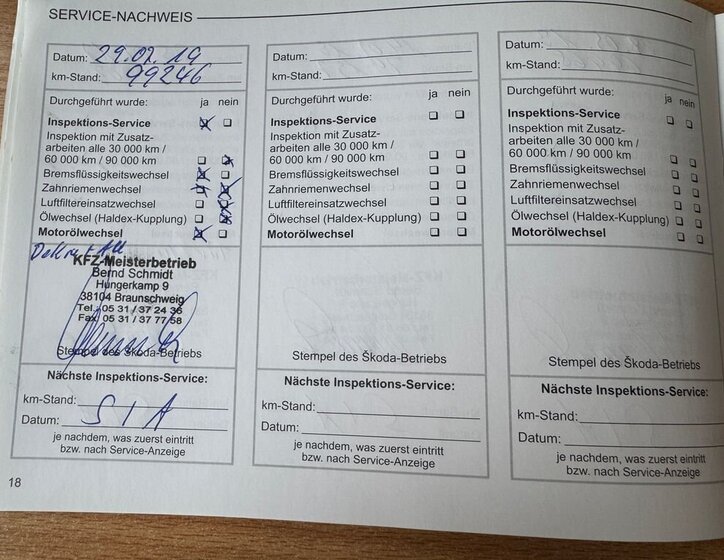 SERVICE-NACHWEIS
Datum: 29.07.19
km-Stand: 99246
Durchgeführt wurde: ja nein
Inspektions-Service
Inspektion mit Zusatz-
arbeiten alle 30 000 km /
60 000 km / 90 000 km
Bremsflüssigkeitswechsel
Zahnriemenwechsel
Luftfiltereinsatzwechsel
Ölwechsel (Haldex-Kupplung)
Motorölwechsel
KFZ-Meisterbetrieb
Bernd Schmidt
Hungerkamp 9
38104 Braunschweig
Tel. 05 31 / 37 24 36
Fax 05 31 / 37 77 58
Stempel des Škoda-Betriebs
Nächste Inspektions-Service:
km-Stand:
Datum: S I A
je nachdem, was zuerst eintritt
bzw. nach Service-Anzeige
18
Datum:
km-Stand:
Durchgeführt wurde: ja nein
Inspektions-Service
Inspektion mit Zusatz-
arbeiten alle 30 000 km /
60 000 km / 90 000 km
Bremsflüssigkeitswechsel
Zahnriemenwechsel
Luftfiltereinsatzwechsel
Ölwechsel (Haldex-Kupplung)
Motorölwechsel
Stempel des Škoda-Betriebs
Nächste Inspektions-Service:
km-Stand:
Datum:
je nachdem, was zuerst eintritt
bzw. nach Service-Anzeige
Datum:
km-Stand:
Durchgeführt wurde: ja nein
Inspektions-Service
Inspektion mit Zusatz-
arbeiten alle 30 000 km /
60 000 km / 90 000 km
Bremsflüssigkeitswechsel
Zahnriemenwechsel
Luftfiltereinsatzwechsel
Ölwechsel (Haldex-Kupplung)
Motorölwechsel
Stempel des Škoda-Betriebs
Nächste Inspektions-Service:
km-Stand:
Datum:
je nachdem, was zuerst eintritt
bzw. nach Service-Anzeige